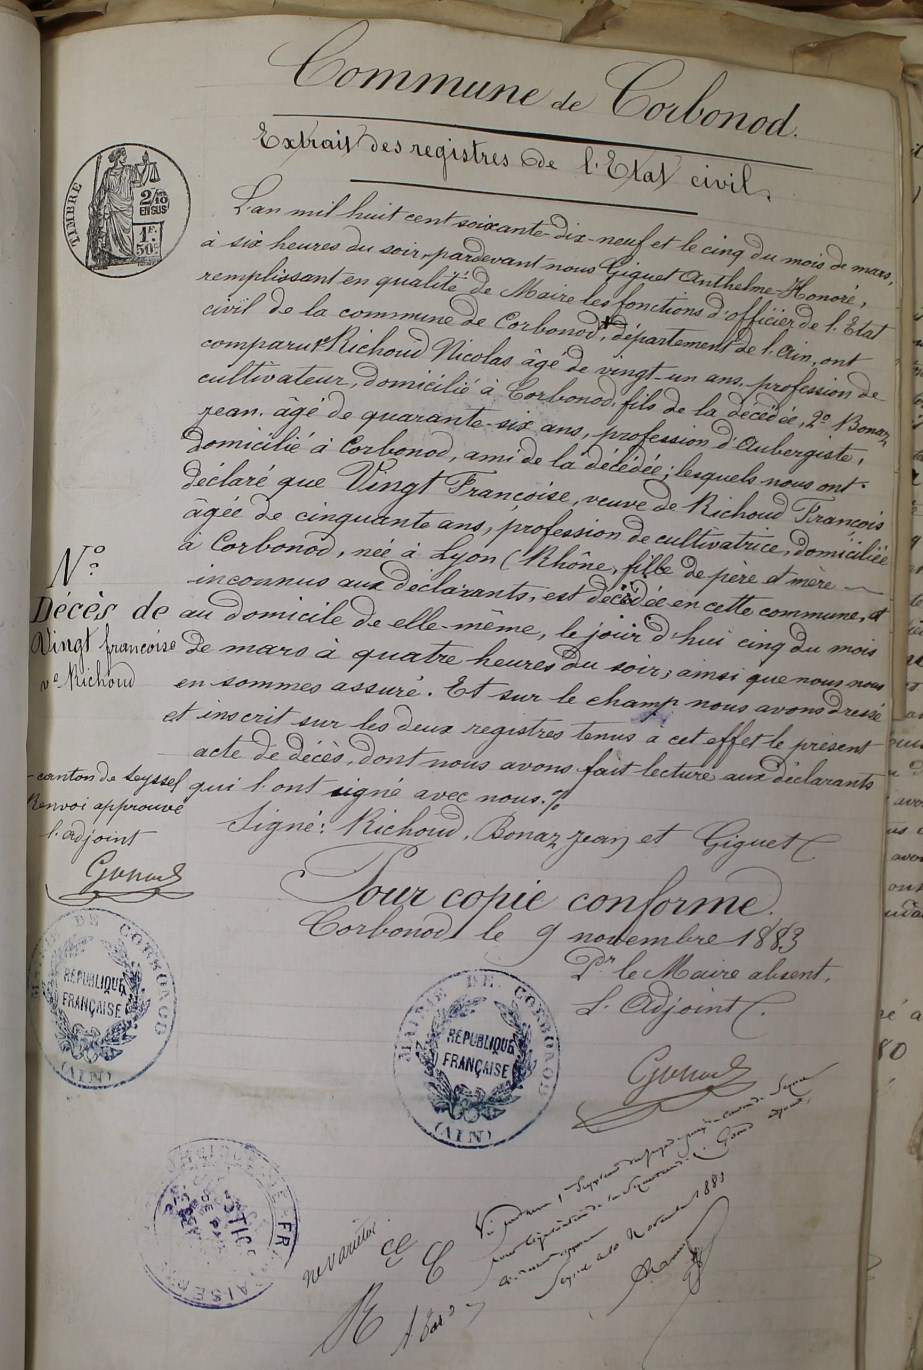 Commune de Corbonod.
Extrait des registres de l'Etat civil.
TIMBRE
2/10
EN SUS
1F.
50c.
L'an mil huit cent soixante-dix-neuf et le cinq du mois de mars,
à six heures du soir, pardevant nous Giguet Anthelme-Honoré,
remplissant en qualité de Maire les fonctions d'officier de l'Etat
civil de la commune de Corbonod, département de l'Ain, ont
comparu Richoud Nicolas âgé de vingt-un ans, profession de
cultivateur, domicilié à Corbonod, fils de la décédée, 2° Bonaz
Jean, âgé de quarante-six ans, profession d'Aubergiste,
domicilié à Corbonod, ami de la décédée; lesquels nous ont
déclaré que Vingt Françoise, veuve de Richoud François
âgée de cinquante ans, profession de cultivatrice, domiciliée
à Corbonod, née à Lyon (Rhône, fille de père et mère
inconnus aux déclarants, est décédée en cette commune, et
au domicile de elle-même, le jour d'hui cinq du mois
de mars à quatre heures du soir; ainsi que nous nous
en sommes assuré. Et sur le champ nous avons dressé
et inscrit sur les deux registres tenus à cet effet le présent
acte de décès, dont nous avons fait lecture aux déclarants
qui l'ont signé avec nous.
Signé: Richoud, Bonaz Jean et Giguet
N°
Décès de
Vingt françoise
ve Richoud
canton de Seyssel
Renvoi approuvé
l'adjoint
Pour copie conforme.
Corbonod le 9 novembre 1883
Pr le Maire absent,
L'Adjoint
MAIRIE DE CORBONOD
RÉPUBLIQUE
FRANÇAISE
(AIN)
MAIRIE DE CORBONOD
RÉPUBLIQUE
FRANÇAISE
(AIN)
ne varietur
Novembre 1883